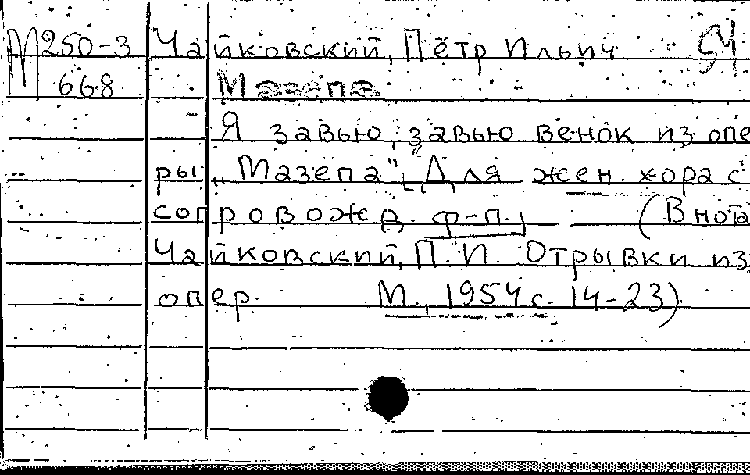 М250-3 Чайковский, Пётр Ильич
668 Мазепа
Я завью, завью венок из опе
ры „Мазепа". [Для жен. хора с
сопровожд. ф-п.] (В нот
Чайковский, П.И. Отрывки из
опер. М., 1954 с. 14-23)